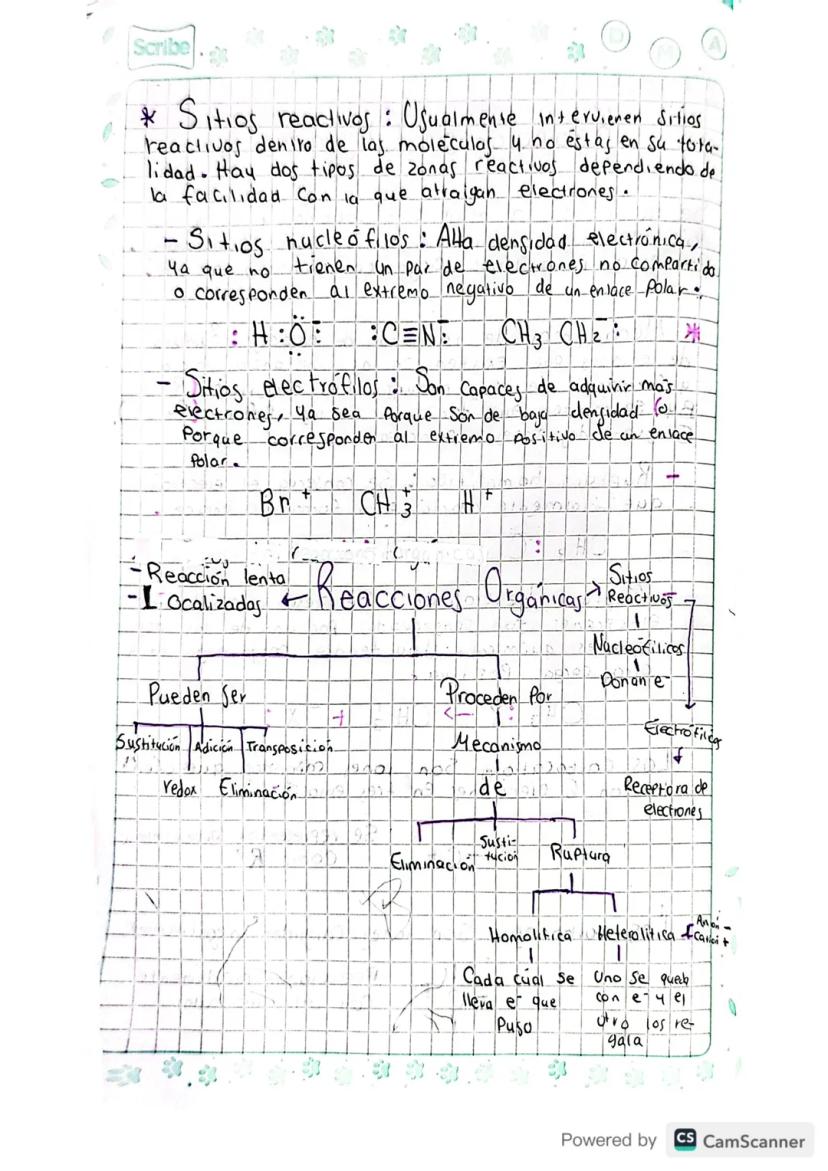 Scribe
D M A
* Sitios reactivos : Usualmente intervienen sitios
reactivos dentro de las moléculas y no éstas en su tota-
lidad. Hay dos tipos de zonas reactivos dependiendo de
la facilidad con la que atraigan electrones.
- Sitios nucleófilos : Alta densidad electrónica,
ya que no tienen un par de electrones no compartido
o corresponden al extremo negativo de un enlace polar.
: H :Ö:⁻ :C≡N:⁻ CH₃ CH₂⁻: *
- Sitios electrófilos : Son capaces de adquirir más
electrones, ya sea porque son de baja densidad o
porque corresponden al extremo positivo de un enlace
polar.
Br⁺ CH₃⁺ H⁺
- Reacción lenta
- Localizadas ← Reacciones Orgánicas → Sitios
Reactivos
Nucleofílicos
Donan e⁻
Pueden ser Proceden por
Electrófilos
Sustitución Adición Transposición Mecanismo
redox Eliminación de Receptora de
electrones
Eliminación Susti-
tución Ruptura
Homolítica Heterolítica Anión -
Catión +
Cada cual se Uno se queda
lleva e⁻ que con e⁻ y el
puso otro los re-
gala
Powered by CS CamScanner